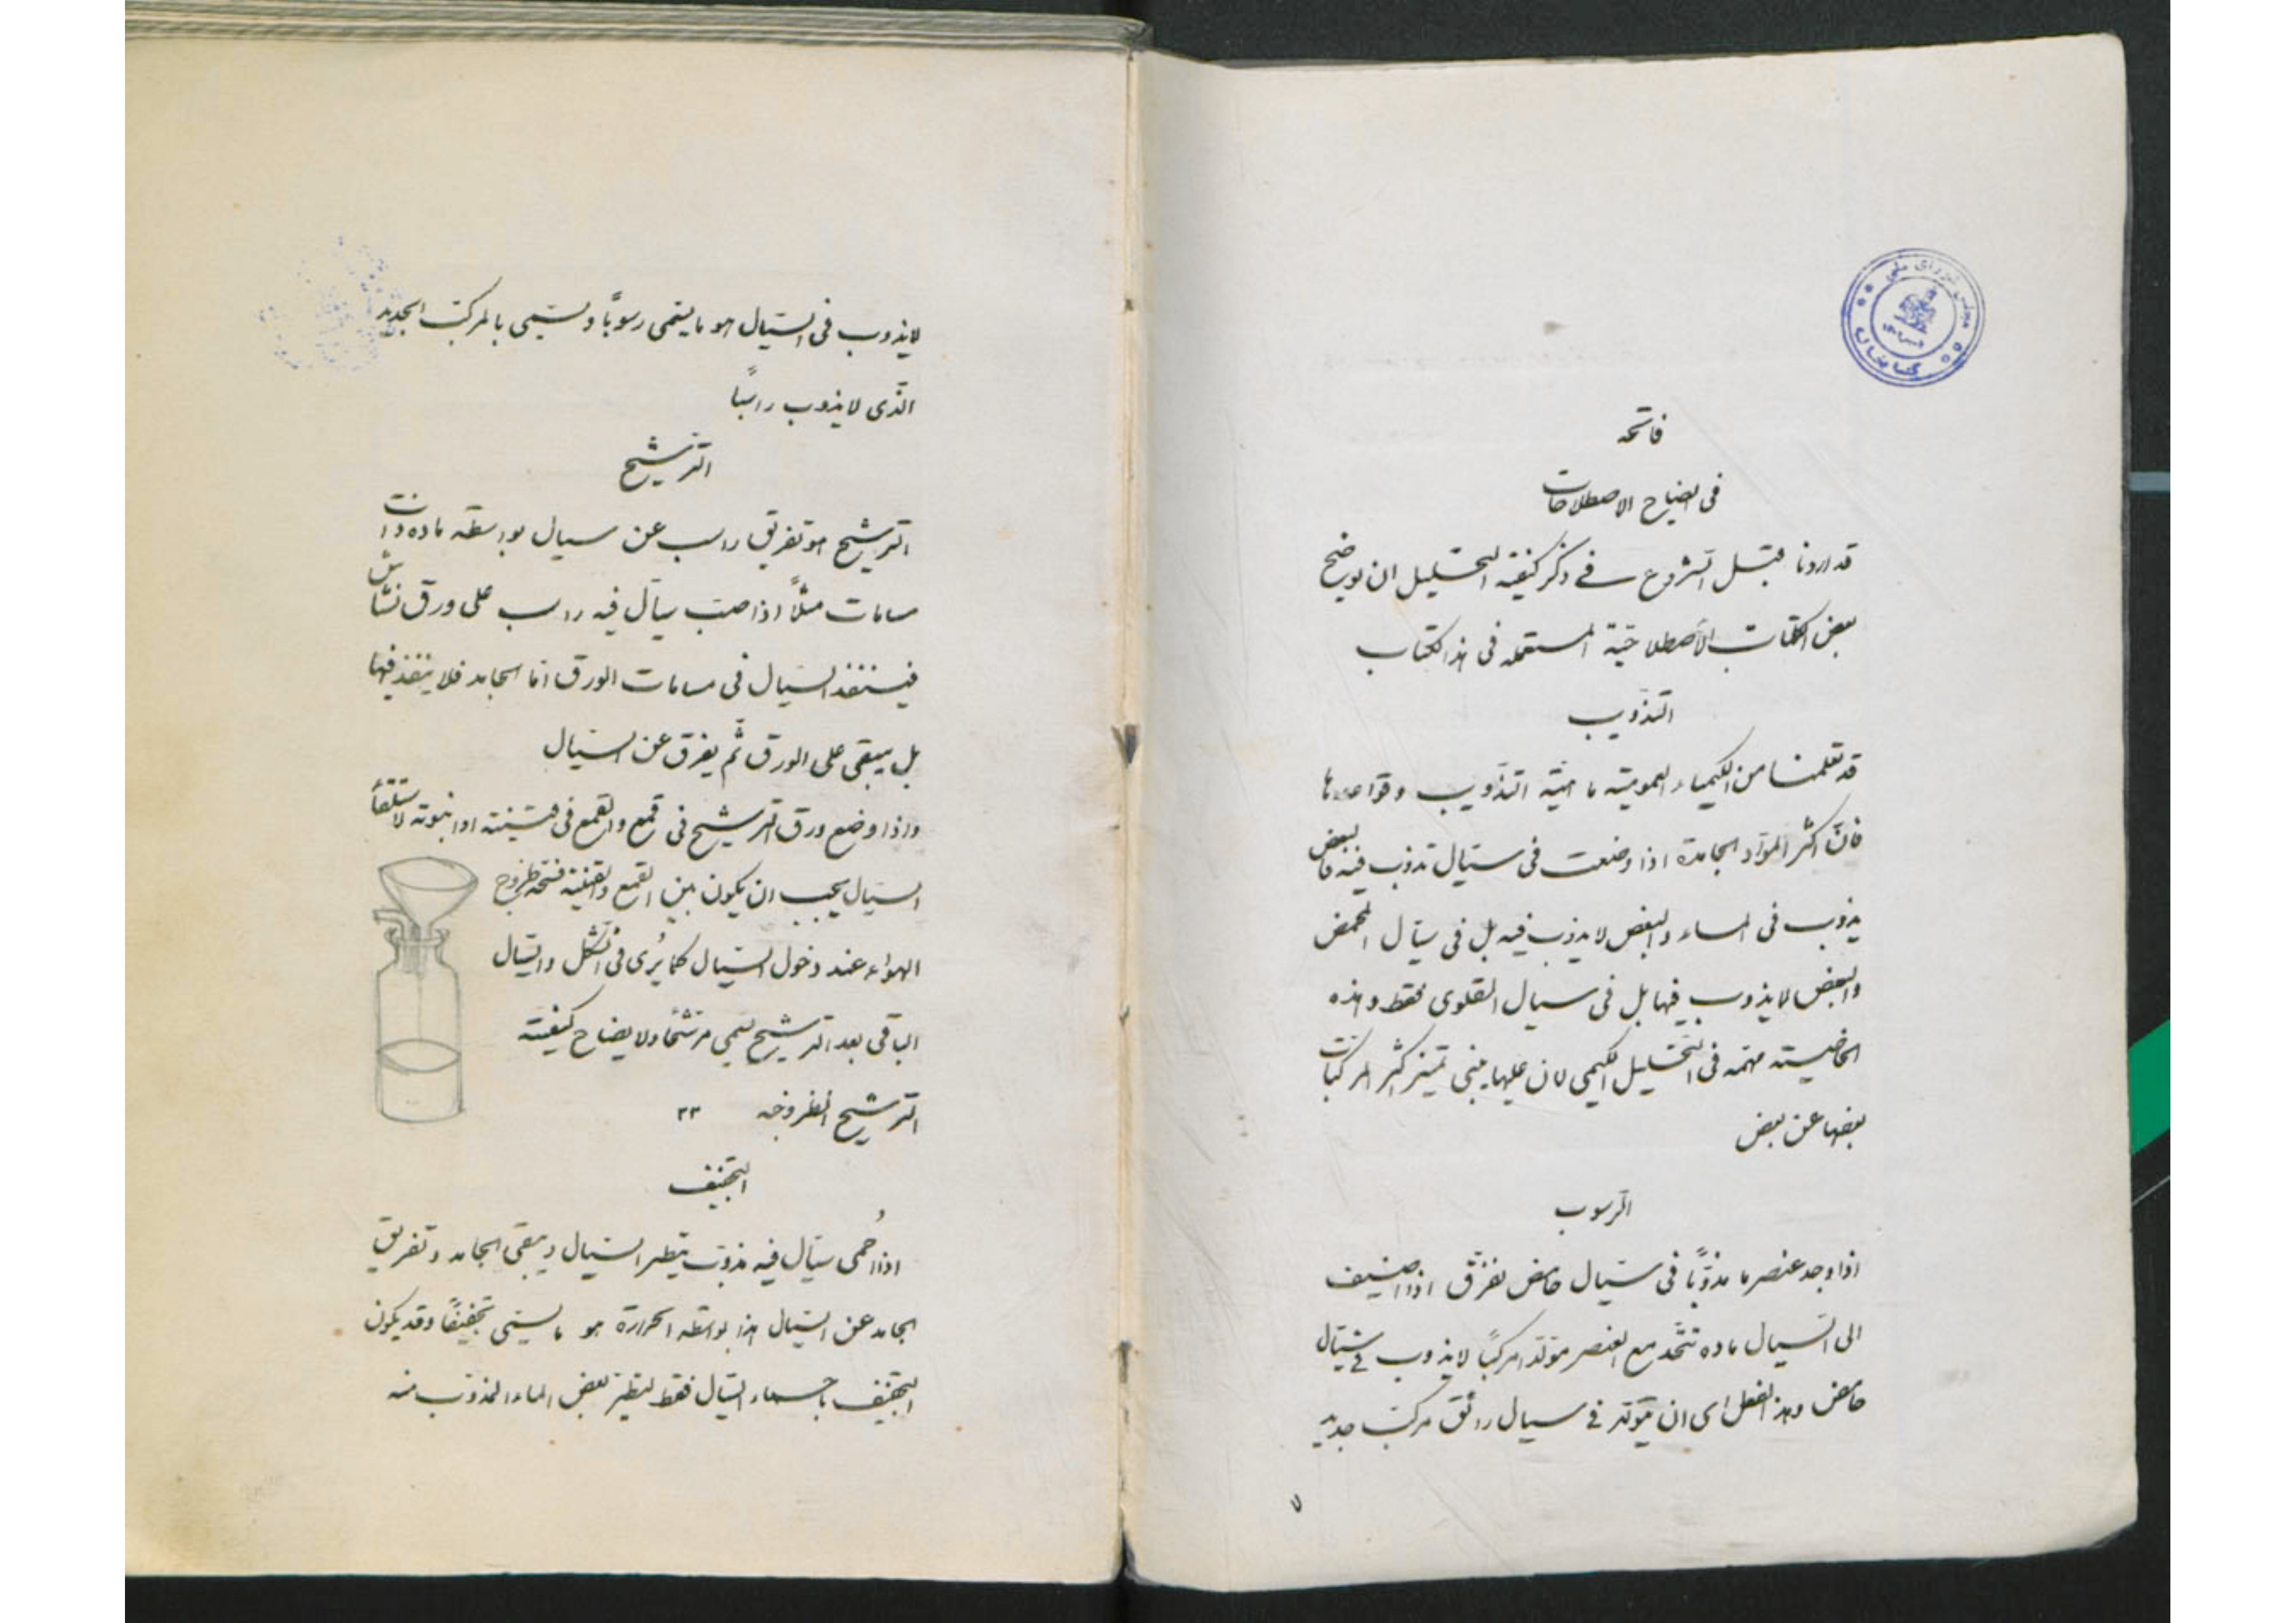 مجلس شورای ملی
کتابخانه
فاتحه
فی ایضاح الاصطلاحات
قد اردنا قبل الشروع فی ذکر کیفیة التحلیل ان یوضح
بعض الکلمات الاصطلاحیّة المستعمله فی هذا الکتاب
التذویب
قد تعلمنا من الکیمیاء العمومیّة ماهیّة التذویب وقواعدها
فانّ اکثر الموّاد الجامدة اذا وضعت فی سیّال تذوب فیه فالبعض
یذوب فی الماء والبعض لا یذوب فیه بل فی سیّال المحمض
والبعض لا یذوب فیها بل فی سیال القلوی فقط وهذه
الخاصیته مهمّه فی التحلیل الکیمی لان علیها مبنی تمیز اکثر المرکبات
بعضها عن بعض
الرسوب
اذا وجد عنصر ما مذوّباً فی سیّال حامض تفرّق اذا اضیف
الی السیال ماده تتّحد مع العنصر مولّداً مرکّباً لا یذوب فی سیّال
حامض وهذا الفعل ای ان یتولّد فی سیال رائق مرکّب جدید
۷
لا یذوب فی السیّال هو ما یسمّی رسوباً ویسمّی بالمرکب الجدید
الذّی لا یذوب راسباً
الترشیح
الترشیح هو تفریق راسب عن سیال بواسطه ماده ذات
مسامات مثلاً اذا صبّ سیال فیه راسب علی ورق نشاش
فیستنفذ السیّال فی مسامات الورق امّا الجامد فلا ینفذ فیها
بل یبقی علی الورق ثمّ یفرق عن السیّال
واذا وضع ورق الترشیح فی قمع والقمع فی قنّینته او انبوته لاستلقأ
السیّال یجب ان یکون بین القمع والقنینه فتحه لخروج
الهواء عند دخول السیّال کما یُری فی الشکل والسیّال
الباقی بعد الترشیح یسمی مرشّحاً ولایضاح کیفیّته
الترشیح انظر وجه ۳۳
التجفیف
اذا اُحمی سیّال فیه مذوّب یتطیر السیّال ویبقی الجامد وتفریق
الجامد عن السیّال هذا بواسطه الحرارة هو ما یسمّی تجفیفاً وقد یکون
التجفیف باحماء السیّال فقط لیتطیّر بعض الماء المذوّب منه